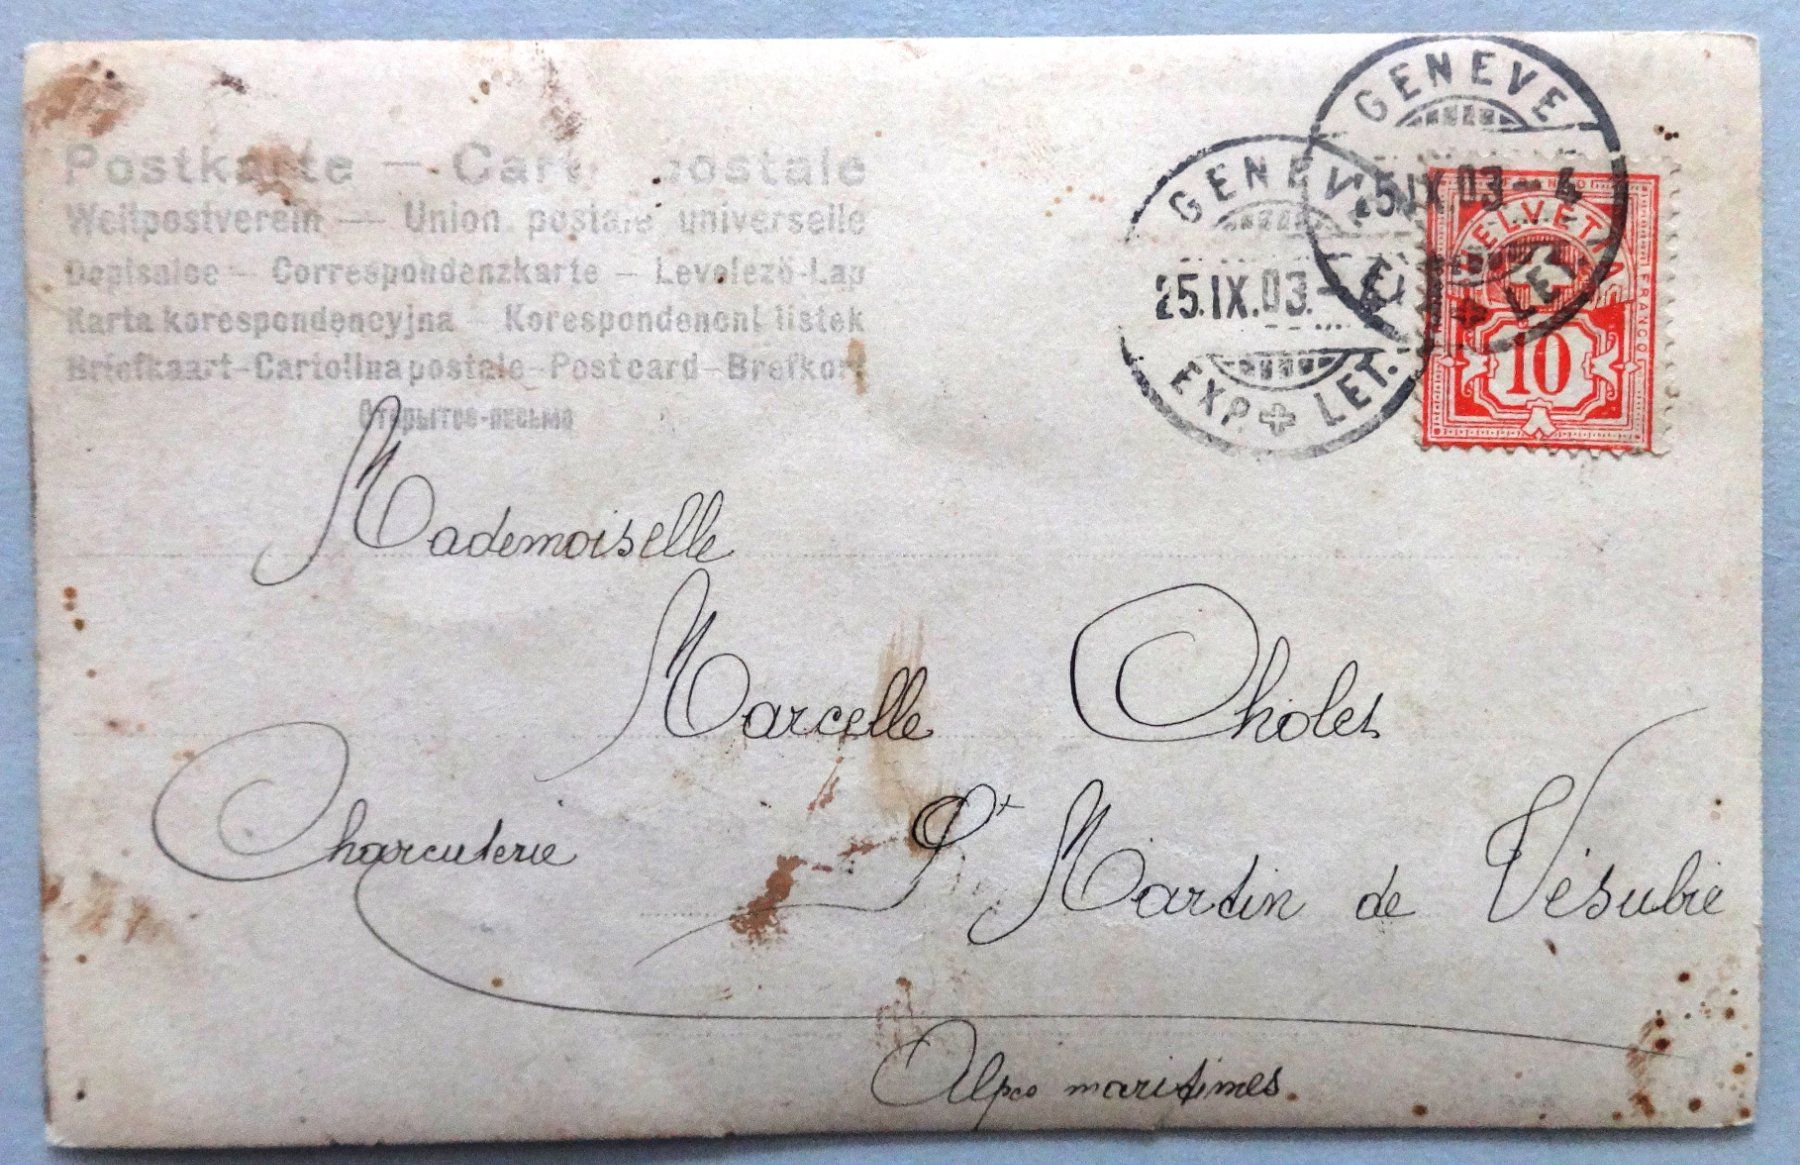 Postkarte — Carte postale
Weltpostverein — Union postale universelle
Dopisnice — Correspondenzkarte — Levelező-Lap
Karta korespondencyjna — Korespondenčni listek
Briefkaart-Cartolina postale-Postcard-Brefkort
Открытое-письмо
GENEVE
25.IX.03.-4
EXP. LET.
GENEVE
25.IX.03-4
EXP. LET.
FRANCO
HELVETIA
FRANCO
10
Mademoiselle
Marcelle Cholet
Charcuterie
St Martin de Vésubie
Alpes maritimes.